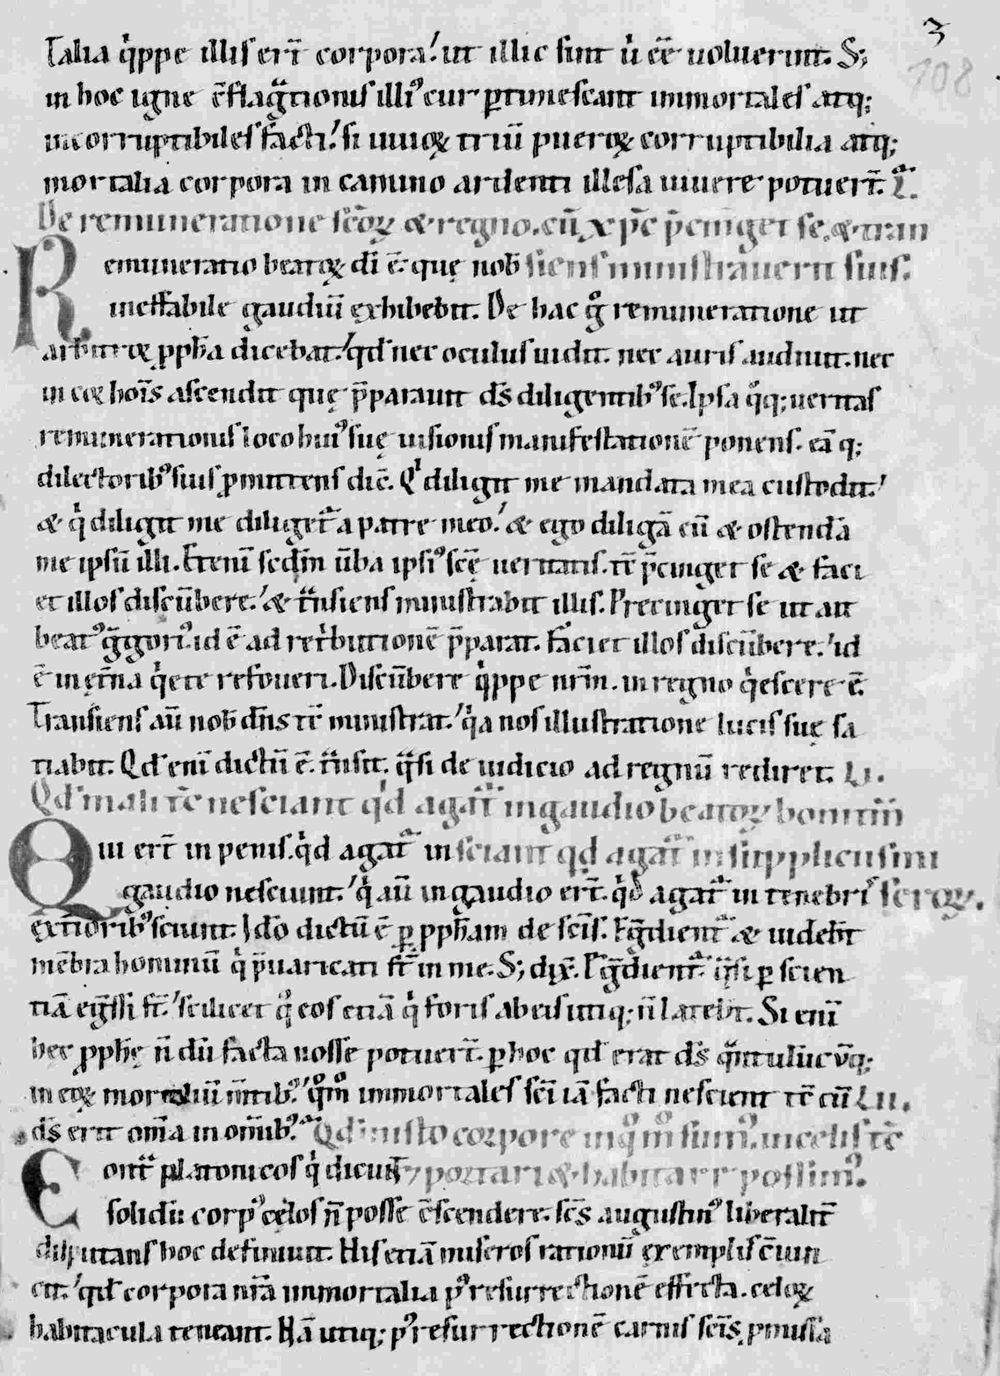 3
108
Talia q̇ppe illis er̄t corpora! ut illic sint u̇ eē uoluerint. S;
in hoc igne c̄flag̃tionis illi᷒ cur ꝑtimescant immortales atq;
incorruptibiles facti! si uiuoꝝ triū pueroꝝ corruptibilia atq;
mortalia corpora in camino ardenti illesa uiuere potuer̄t. L.
De remuneratione sc̄oꝝ & regno. cū xp̄c p̄cinget se. & tran
Remuneratio beatoꝝ dī ē. que nob siens ministrauerit suis.
ineffabile gaudiū exhibebit. De hac g̊ remuneratione ut
arbitror ꝓph̄a dicebat! qd̄ nec oculus uidit. nec auris audiuit. nec
in cor hoīs ascendit quę p̄parauit dš diligentib᷒ se. Ipsa q̊q; ueritas
remunerationis loco hui᷒ suę uisionis manifestationē ponens. eā q;
dilectorib᷒ suis ꝓmittens dic̄. Q̇ diligit me mandata mea custodit!
& q̇ diligit me diliget̃ a patre meo! & ego diligā eū & ostendā
me ipsū illi. Etenī scdm̄ ūba ipsi᷒ sc̄ę ueritatis. tc̄ p̄cinget se & faci
et illos discūbere! & t̃nsiens ministrabit illis. Precinget se ut ait
beat᷒ g̃gori᷒. id ē ad ret̄butionē p̄parat. Faciet illos discūbere! id
ē in et̄na q̇ete refoueri. Discūbere q̇ppe nr̄m. in regno q̇escere ē.
Transiens aū nob dn̄s tc̄ ministrat! q̇a nos illustratione lucis suę sa
tiabit. Qd̄ enī dictū ē. t̃nsit. q̃si de iudicio ad regnū rediret. LI.
Qd̄ mali tc̄ nesciant qd̄ agat̃ in gaudio beatoꝝ boni tm̄
Qui er̄t in penis. q̇d agat̃ in sciant qd̄ agat̃ in suppliciis mi
gaudio nesciunt! q̇ aū in gaudio er̄t. q̇d agat̃ in tenebris seroꝝ.
exteriorib᷒ sciunt. Ido dictū ē ꝑ ꝓph̄am de sc̄is. Eg̃dient̃ & uideb̄t
mēbra hominū q̇ p̄uaricati st̄ in me. S; dix̄. Eg̃dient̃. q̃si ꝑ scien
tiā eg̃ssi st̄! scilicet q̊ eos etiā q̇ foris abeis utiq; n̄ lateb̄t. Si enī
hec ꝓph̄ę n̄ dū facta nosse potuer̄t. ꝑ hoc qd̄ erat dš q̃ntulūcūq;
in eoꝝ mortaliū m̄tib᷒! q̊m̊ immortales sc̄i iā facti nescient tc̄ cū LII.
dš erit om̄a in om̄ib᷒. Qd̄ iusto corpore in q̊ m̊ sum᷒. in celis tc̄
Cont̃ platonicos q̇ dicunt portari & habitare possim᷒.
solidū corp᷒ cęlos n̄ posse c̄scendere. sc̄s augustin᷒ liberalit̄
disputans hoc definiuit. His etiā miseros rationū exemplis c̄uin
cit! qd̄ corpora nr̄a immortalia p᷒ resurrectionē effecta. celoꝝ
habitacula teneant. Hā utiq; p᷒ resurrectionē carnis sc̄is ꝓmissa